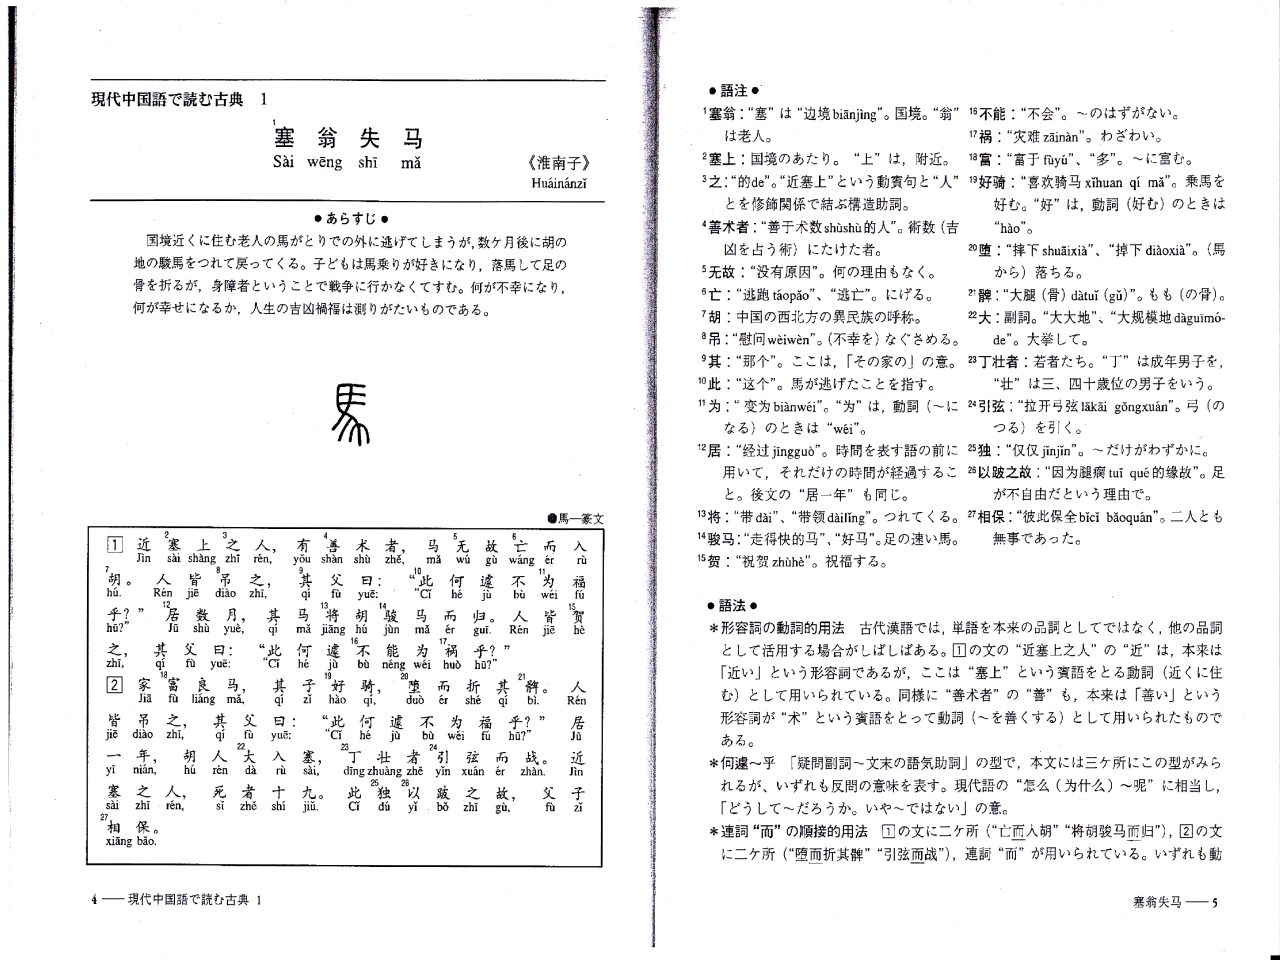 現代中国語で読む古典 1
1
塞 翁 失 马
Sài wēng shī mǎ
《淮南子》
Huáinánzǐ
●あらすじ●
国境近くに住む老人の馬がとりでの外に逃げてしまうが,数ケ月後に胡の
地の駿馬をつれて戻ってくる。子どもは馬乗りが好きになり，落馬して足の
骨を折るが，身障者ということで戦争に行かなくてすむ。何が不幸になり，
何が幸せになるか，人生の吉凶禍福は測りがたいものである。
馬
●馬―篆文
1 近 2塞 上 3之 人， 有 4善 术 者， 马 5无 故 6亡 而 入
Jìn sài shàng zhī rén, yǒu shàn shù zhě, mǎ wú gù wáng ér rù
7胡。 人 皆 8吊 之， 9其 父 曰： “10此 何 遽 不 11为 福
hú. Rén jiē diào zhī, qí fù yuē: “Cǐ hé jù bù wéi fú
乎？” 12居 数 月， 其 马 13将 胡 14骏 马 而 归。 人 皆 15贺
hū?” Jū shù yuè, qí mǎ jiāng hú jùn mǎ ér guī. Rén jiē hè
之， 其 父 曰： “此 何 遽 不 16能 为 17祸 乎？”
zhī, qí fù yuē: “Cǐ hé jù bù néng wéi huò hū?”
2 家 18富 良 马， 其 子 19好 骑， 20堕 而 折 其 21髀。 人
Jiā fù liáng mǎ, qí zǐ hào qí, duò ér shé qí bì. Rén
皆 吊 之， 其 父 曰： “此 何 遽 不 为 福 乎？” 居
jiē diào zhī, qí fù yuē: “Cǐ hé jù bù wéi fú hū?” Jū
一 年， 胡 人 22大 入 塞， 23丁 壮 者 24引 弦 而 战。 近
yī nián, hú rén dà rù sài, dīng zhuàng zhě yǐn xuán ér zhàn. Jìn
塞 之 人， 死 者 十 九。 此 25独 26以 跛 之 故， 父 子
sài zhī rén, sǐ zhě shí jiǔ. Cǐ dú yǐ bǒ zhī gù, fù zǐ
27相 保。
xiāng bǎo.
4 ── 現代中国語で読む古典 1
●語注●
1塞翁：“塞” は “边境 biānjìng”。国境。“翁”
は老人。
2塞上：国境のあたり。 “上” は，附近。
3之：“的de”。“近塞上”という動賓句と“人”
とを修飾関係で結ぶ構造助詞。
4善术者：“善于术数shùshù的人”。術数（吉
凶を占う術）にたけた者。
5无故：“没有原因”。何の理由もなく。
6亡：“逃跑táopǎo”、“逃亡”。にげる。
7胡：中国の西北方の異民族の呼称。
8吊：“慰问wèiwèn”。（不幸を）なぐさめる。
9其：“那个”。ここは，「その家の」の意。
10此：“这个”。馬が逃げたことを指す。
11为：“变为biànwéi”。“为” は，動詞（～に
なる）のときは “wéi”。
12居：“经过jīngguò”。時間を表す語の前に
用いて，それだけの時間が経過するこ
と。後文の “居一年” も同じ。
13将：“带dài”、“带领dàilǐng”。つれてくる。
14骏马：“走得快的马”、“好马”。足の速い馬。
15贺：“祝贺zhùhè”。祝福する。
16不能：“不会”。～のはずがない。
17祸：“灾难zāinàn”。わざわい。
18富：“富于fùyú”、“多”。～に富む。
19好骑：“喜欢骑马xǐhuan qí mǎ”。乗馬を
好む。“好” は，動詞（好む）のときは
“hào”。
20堕：“摔下shuāixià”、“掉下diàoxià”。（馬
から）落ちる。
21髀：“大腿（骨）dàtuǐ（gǔ）”。もも（の骨）。
22大：副詞。“大大地”、“大规模地dàguīmó-
de”。大挙して。
23丁壮者：若者たち。“丁” は成年男子を，
“壮” は三、四十歳位の男子をいう。
24引弦：“拉开弓弦lākāi gōngxuán”。弓（の
つる）を引く。
25独：“仅仅jǐnjǐn”。～だけがわずかに。
26以跛之故：“因为腿瘸tuǐ qué的缘故”。足
が不自由だという理由で。
27相保：“彼此保全bǐcǐ bǎoquán”。二人とも
無事であった。
●語法●
＊形容詞の動詞的用法 古代漢語では，単語を本来の品詞としてではなく，他の品詞
として活用する場合がしばしばある。1の文の “近塞上之人” の “近” は，本来は
「近い」という形容詞であるが，ここは “塞上” という賓語をとる動詞（近くに住
む）として用いられている。同様に “善术者” の “善” も，本来は「善い」という
形容詞が “术” という賓語をとって動詞（～を善くする）として用いられたもので
ある。
＊何遽～乎 「疑問副詞～文末の語気助詞」の型で，本文には三ケ所にこの型がみら
れるが、いずれも反問の意味を表す。現代語の “怎么（为什么）～呢” に相当し，
「どうして～だろうか。いや～ではない」の意。
＊連詞 “而” の順接的用法 1の文に二ケ所（“亡而入胡” “将胡骏马而归”），2の文
に二ケ所（“堕而折其髀” “引弦而战”），連詞 “而” が用いられている。いずれも動
塞翁失马 ── 5